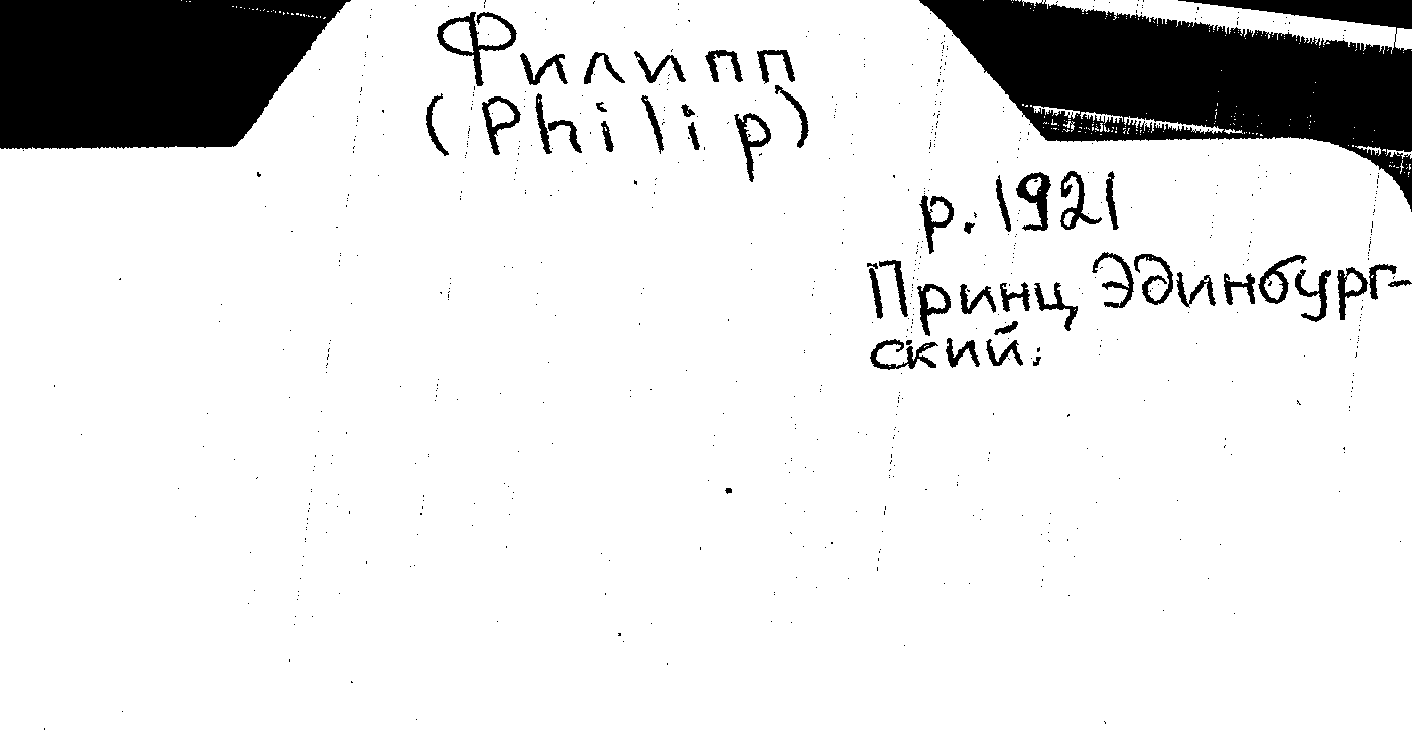 Филипп
(Philip)
р. 1921
Принц Эдинбург-
ский.